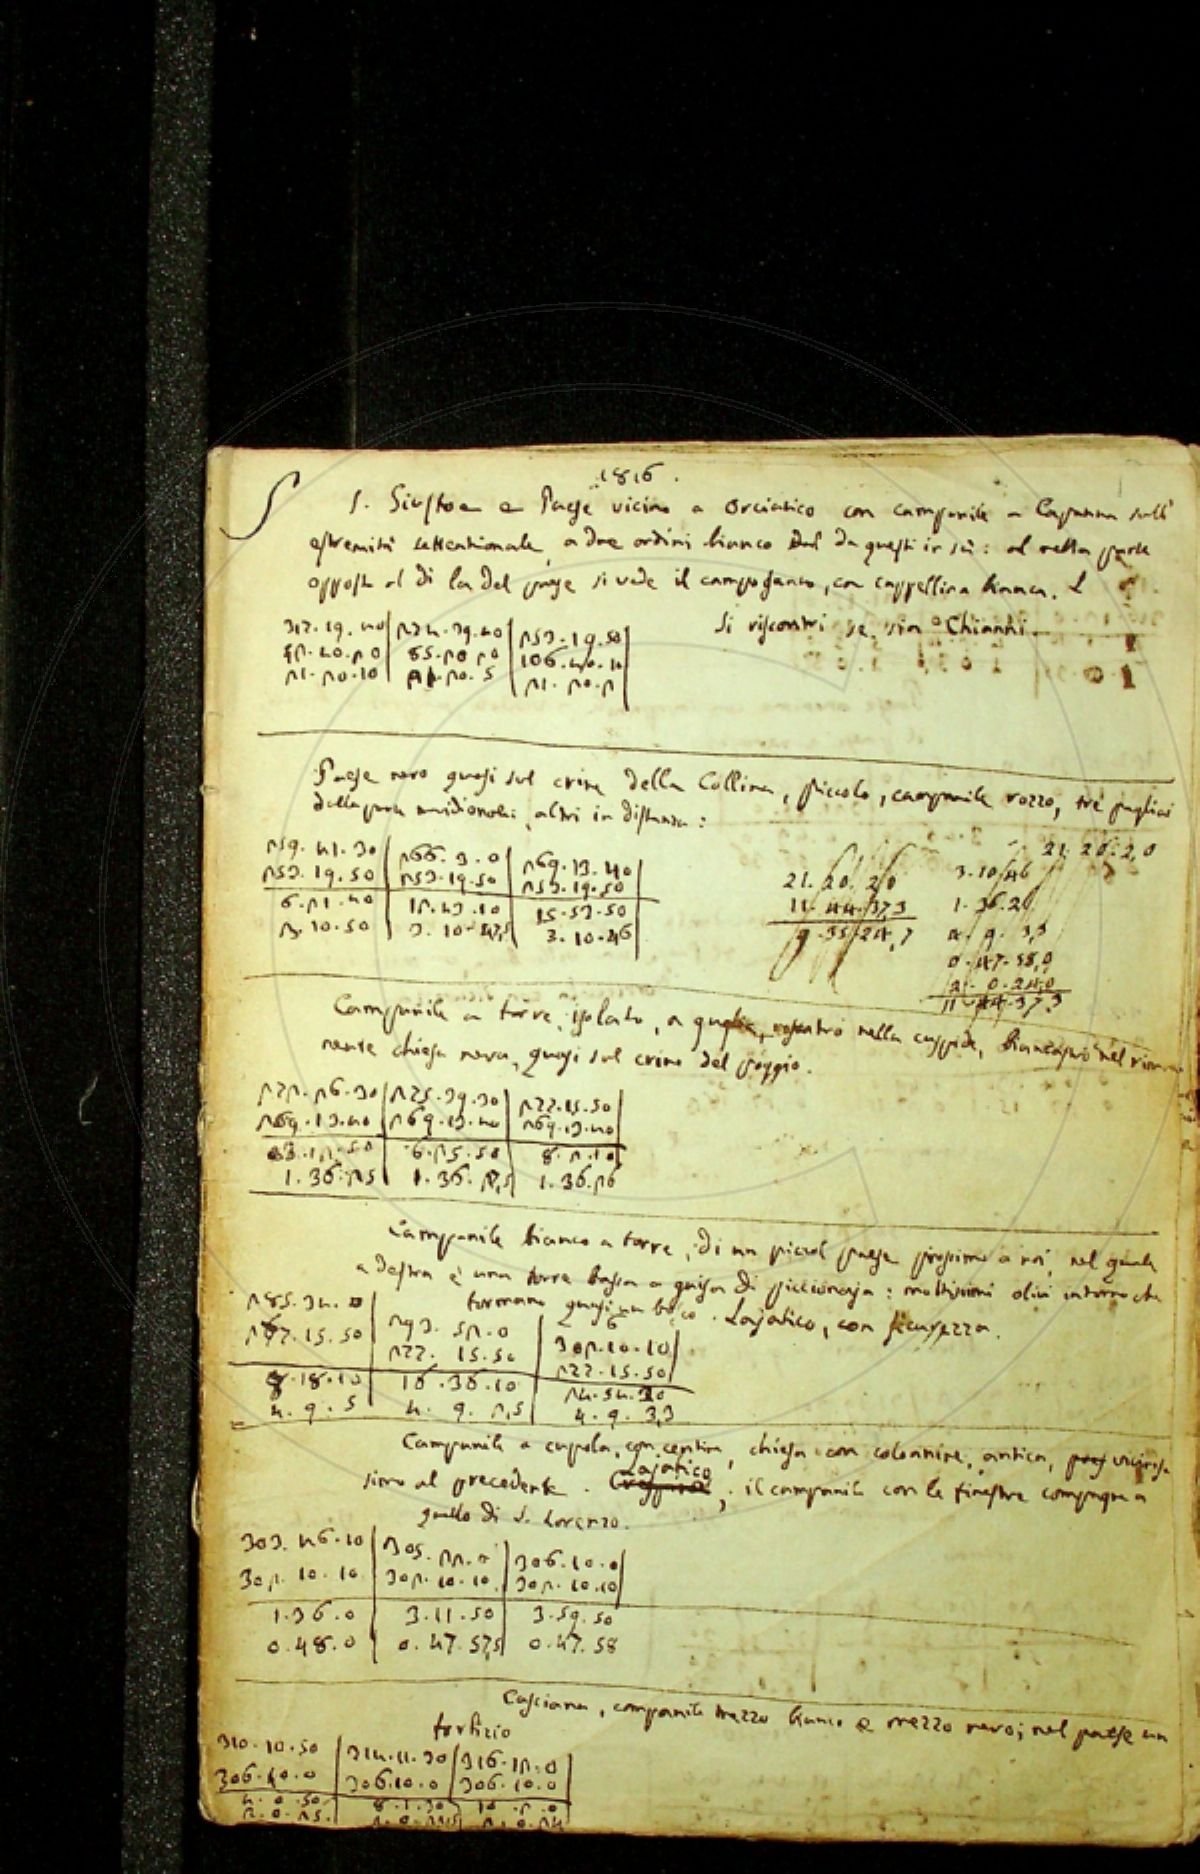 1816.
S. Giusto è Paese vicino a Orciatico con campanile a Capanna sull'
estremità settentrionale, a due ordini bianco da questi in su: al nella parte
opposta al di la del paese si vede il camposanto, con cappellina bianca.
Si riscontri se sia Chianni
317.19.40 | 274.39.40 | 253.19.50
42.40.20 | 85.20.20 | 106.40.10
21.20.10 | 21.20.5 | 21.20.2
Paese nero quasi sul crine della Collina, piccolo, campanile rozzo, tre pagliai
dalla parte meridionale, altri in distanza:
21.20.2,0
259.41.30 | 266.3.0 | 269.13.40
253.19.50 | 253.19.50 | 253.19.50
6.21.40 | 12.43.10 | 15.53.50
3.10.50 | 3.10.47,5 | 3.10.46
21.20.20 3.10.46
11.44.37,3 1.36.26
9.35.24,7 4.9.3,3
0.47.58,0
2.0.24,0
11.44.37,3
Campanile a torre, isolato, a guglia, nella cuspide, nel rima-
nente chiesa nera, quasi sul crine del poggio.
272.26.30 | 275.39.30 | 277.15.50
269.13.40 | 269.13.40 | 269.13.40
3.12.50 | 6.25.50 | 8.2.10
1.36.25 | 1.36.27,5 | 1.36.26
Campanile bianco a torre, di un piccol paese prossimo a noi, nel quale
a destra è una torre bassa a guisa di piccionaja: moltissimi olivi intorno che
formano quasi un bosco. Lajatico, con sicurezza.
285.34.0 | 293.52.0 | 302.10.10
277.15.50 | 277.15.50 | 277.15.50
8.18.10 | 16.36.10 | 24.54.20
4.9.5 | 4.9.2,5 | 4.9.3,3
Campanile a cupola, con centina, chiesa con colonnine, antica, vicinis-
simo al precedente. Lajatico, il campanile con le finestre compagne a
quello di S. Lorenzo.
303.46.10 | 305.22.0 | 306.10.0
302.10.10 | 302.10.10 | 302.10.10
1.36.0 | 3.11.50 | 3.59.50
0.48.0 | 0.47.57,5 | 0.47.58
Casciana, campanile mezzo bianco e mezzo nero; nel paese un
fortizio
310.10.50 | 314.11.30 | 316.12.0
306.10.0 | 306.10.0 | 306.10.0
4.0.50 | 8.1.30 | 10.2.0
2.0.25 | 2.0.22,5 | 2.0.24